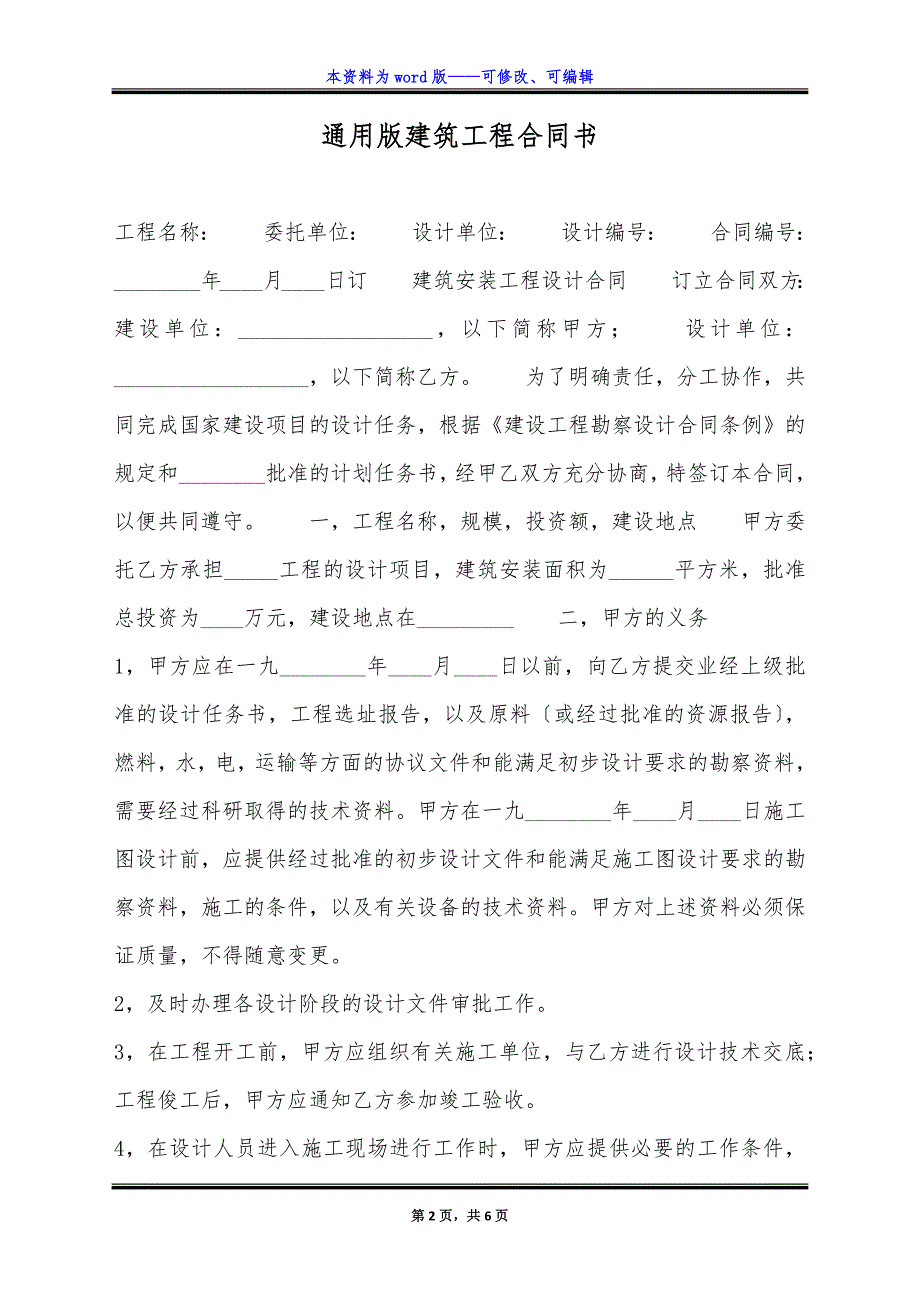 本资料为 word 版——可修改、可编辑
通用版建筑工程合同书
工程名称： 委托单位： 设计单位： 设计编号： 合同编号：
________年____月____日订 建筑安装工程设计合同 订立合同双方：
建设单位：__________________，以下简称甲方； 设计单位：
__________________，以下简称乙方。 为了明确责任，分工协作，共
同完成国家建设项目的设计任务，根据《建设工程勘察设计合同条例》的
规定和________批准的计划任务书，经甲乙双方充分协商，特签订本合同，
以便共同遵守。 一，工程名称，规模，投资额，建设地点 甲方委
托乙方承担_____工程的设计项目，建筑安装面积为______平方米，批准
总投资为____万元，建设地点在_________ 二，甲方的义务
1，甲方应在一九________年____月____日以前，向乙方提交业经上级批
准的设计任务书，工程选址报告，以及原料〔或经过批准的资源报告〕，
燃料，水，电，运输等方面的协议文件和能满足初步设计要求的勘察资料，
需要经过科研取得的技术资料。甲方在一九________年____月____日施工
图设计前，应提供经过批准的初步设计文件和能满足施工图设计要求的勘
察资料，施工的条件，以及有关设备的技术资料。甲方对上述资料必须保
证质量，不得随意变更。
2，及时办理各设计阶段的设计文件审批工作。
3，在工程开工前，甲方应组织有关施工单位，与乙方进行设计技术交底；
工程俊工后，甲方应通知乙方参加竣工验收。
4，在设计人员进入施工现场进行工作时，甲方应提供必要的工作条件，
第 2 页，共 6 页